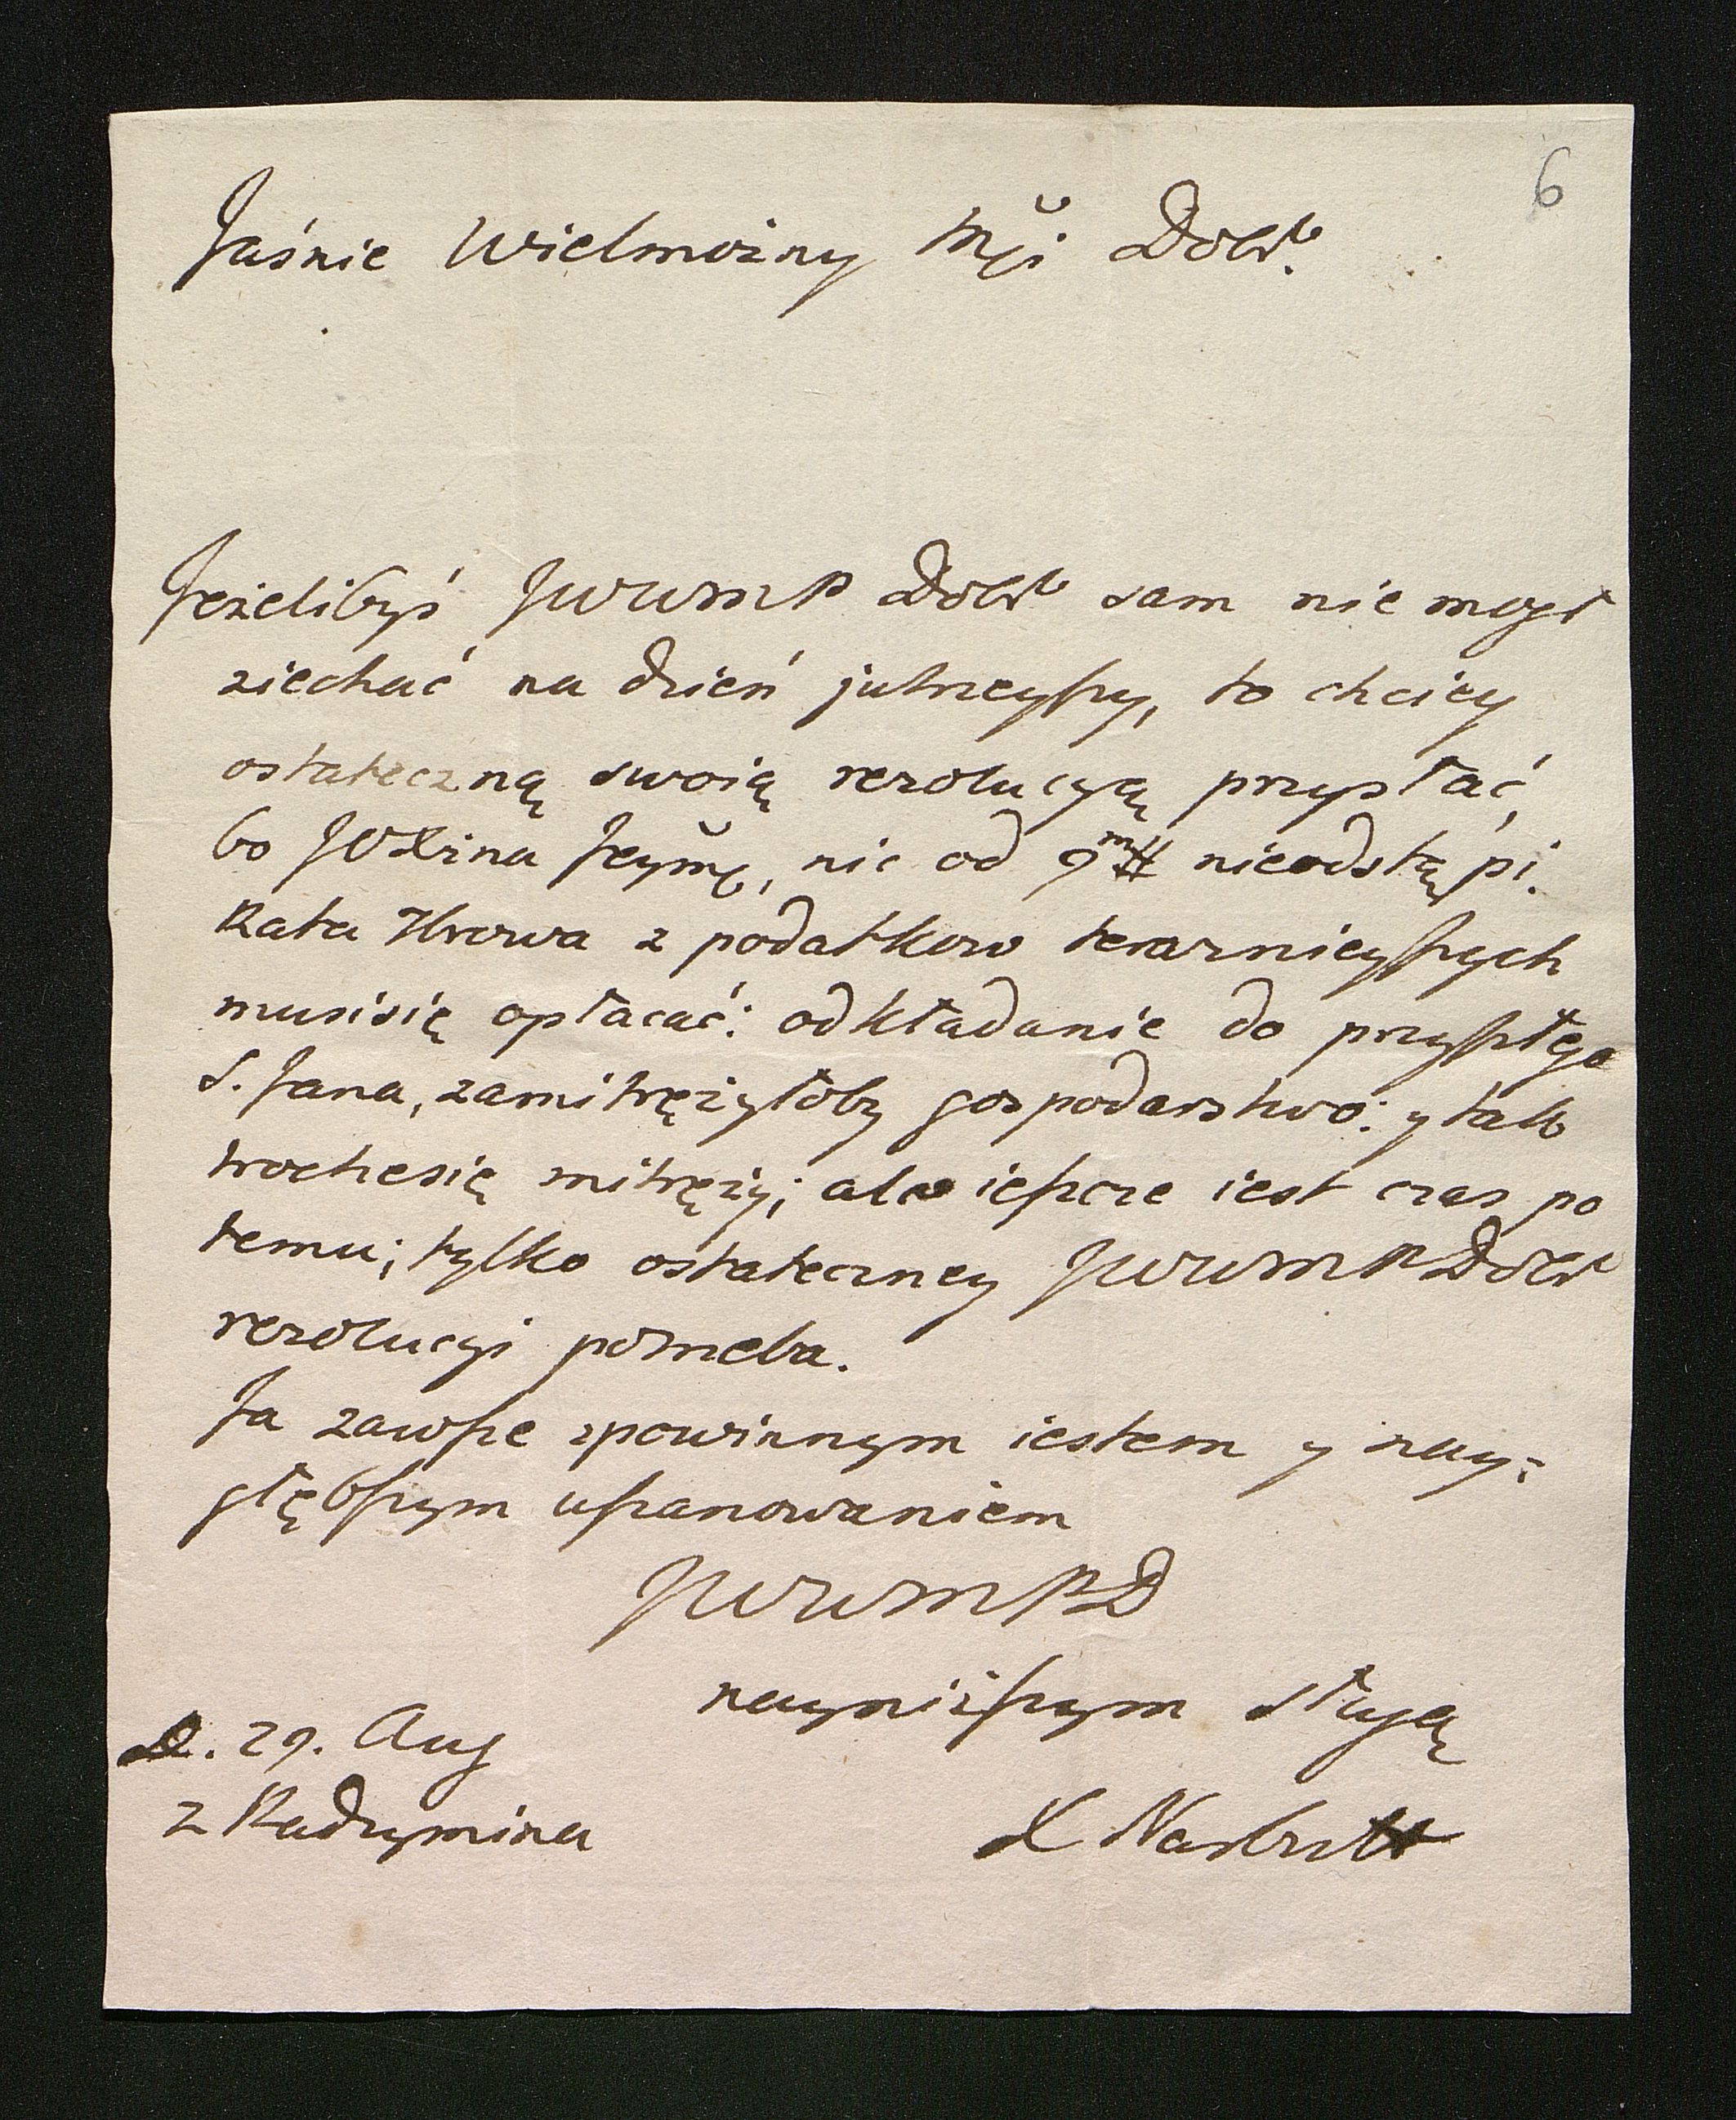 6
Jaśnie Wielmożny Mći Dobr.
Jeżelibyś JWWMP Dobr sam nie mogł
ziechać na dzień jutrzeyszy, to chciey
ostateczną swoią rezolucyą przysłać,
bo JWXżna Jeymć, nic od 9m # nieodstąpi.
Rata Hrowa z podatkow teraznieyszych
musisię opłacać: odkładanie do przyszłego
S. Jana, zamitrężyłoby gospodarstwo: y tak
trochesię mitręży; ale ieszcze iest czas po
temu; tylko ostateczney JWWMP Dobr
rezolucyi potrzeba.
Ja zawsze zpowinnym iestem y nay=
głębszym uszanowaniem
JWWMPD
nayniższym sługą
D. 29. Aug
z Radzymina
X Narbutt